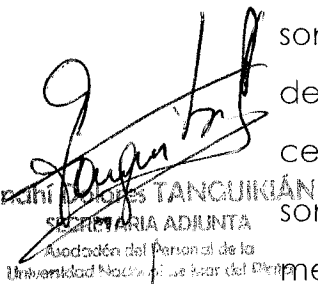 son
de
ce
TANGUIKIÁN
SECRETARIA ADJUNTA
son
Asociación del Personal de la
Universidad Nacional de Mar del Plata
me